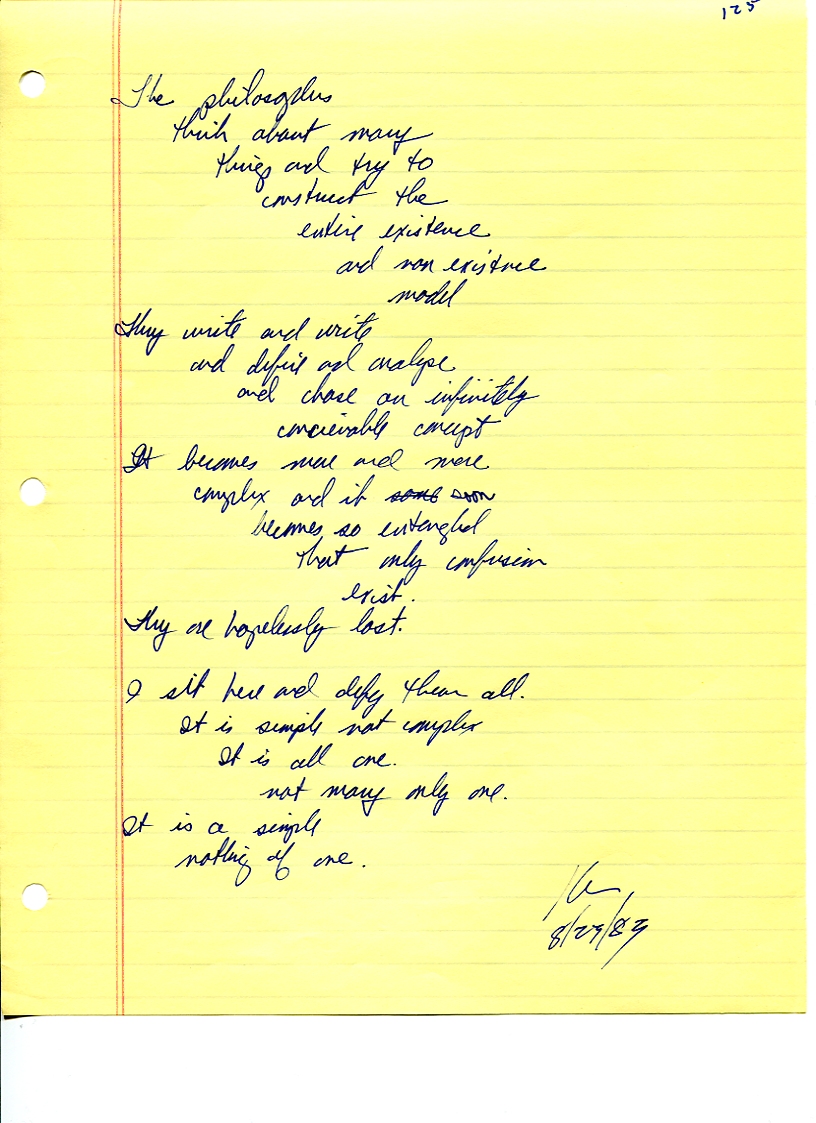 125
The philosophers
think about many
things and try to
construct the
entire existence
and non existence
model
They write and write
and define and analyse
and chase an infinitely
concievable concept
It becomes more and more
complex and it soon
becomes so entangled
that only confusion
exist.
They are hopelessly lost.
I sit here and defy them all.
It is simple not complex
It is all one.
not many only one.
It is a simple
nothing of one.
8/29/89